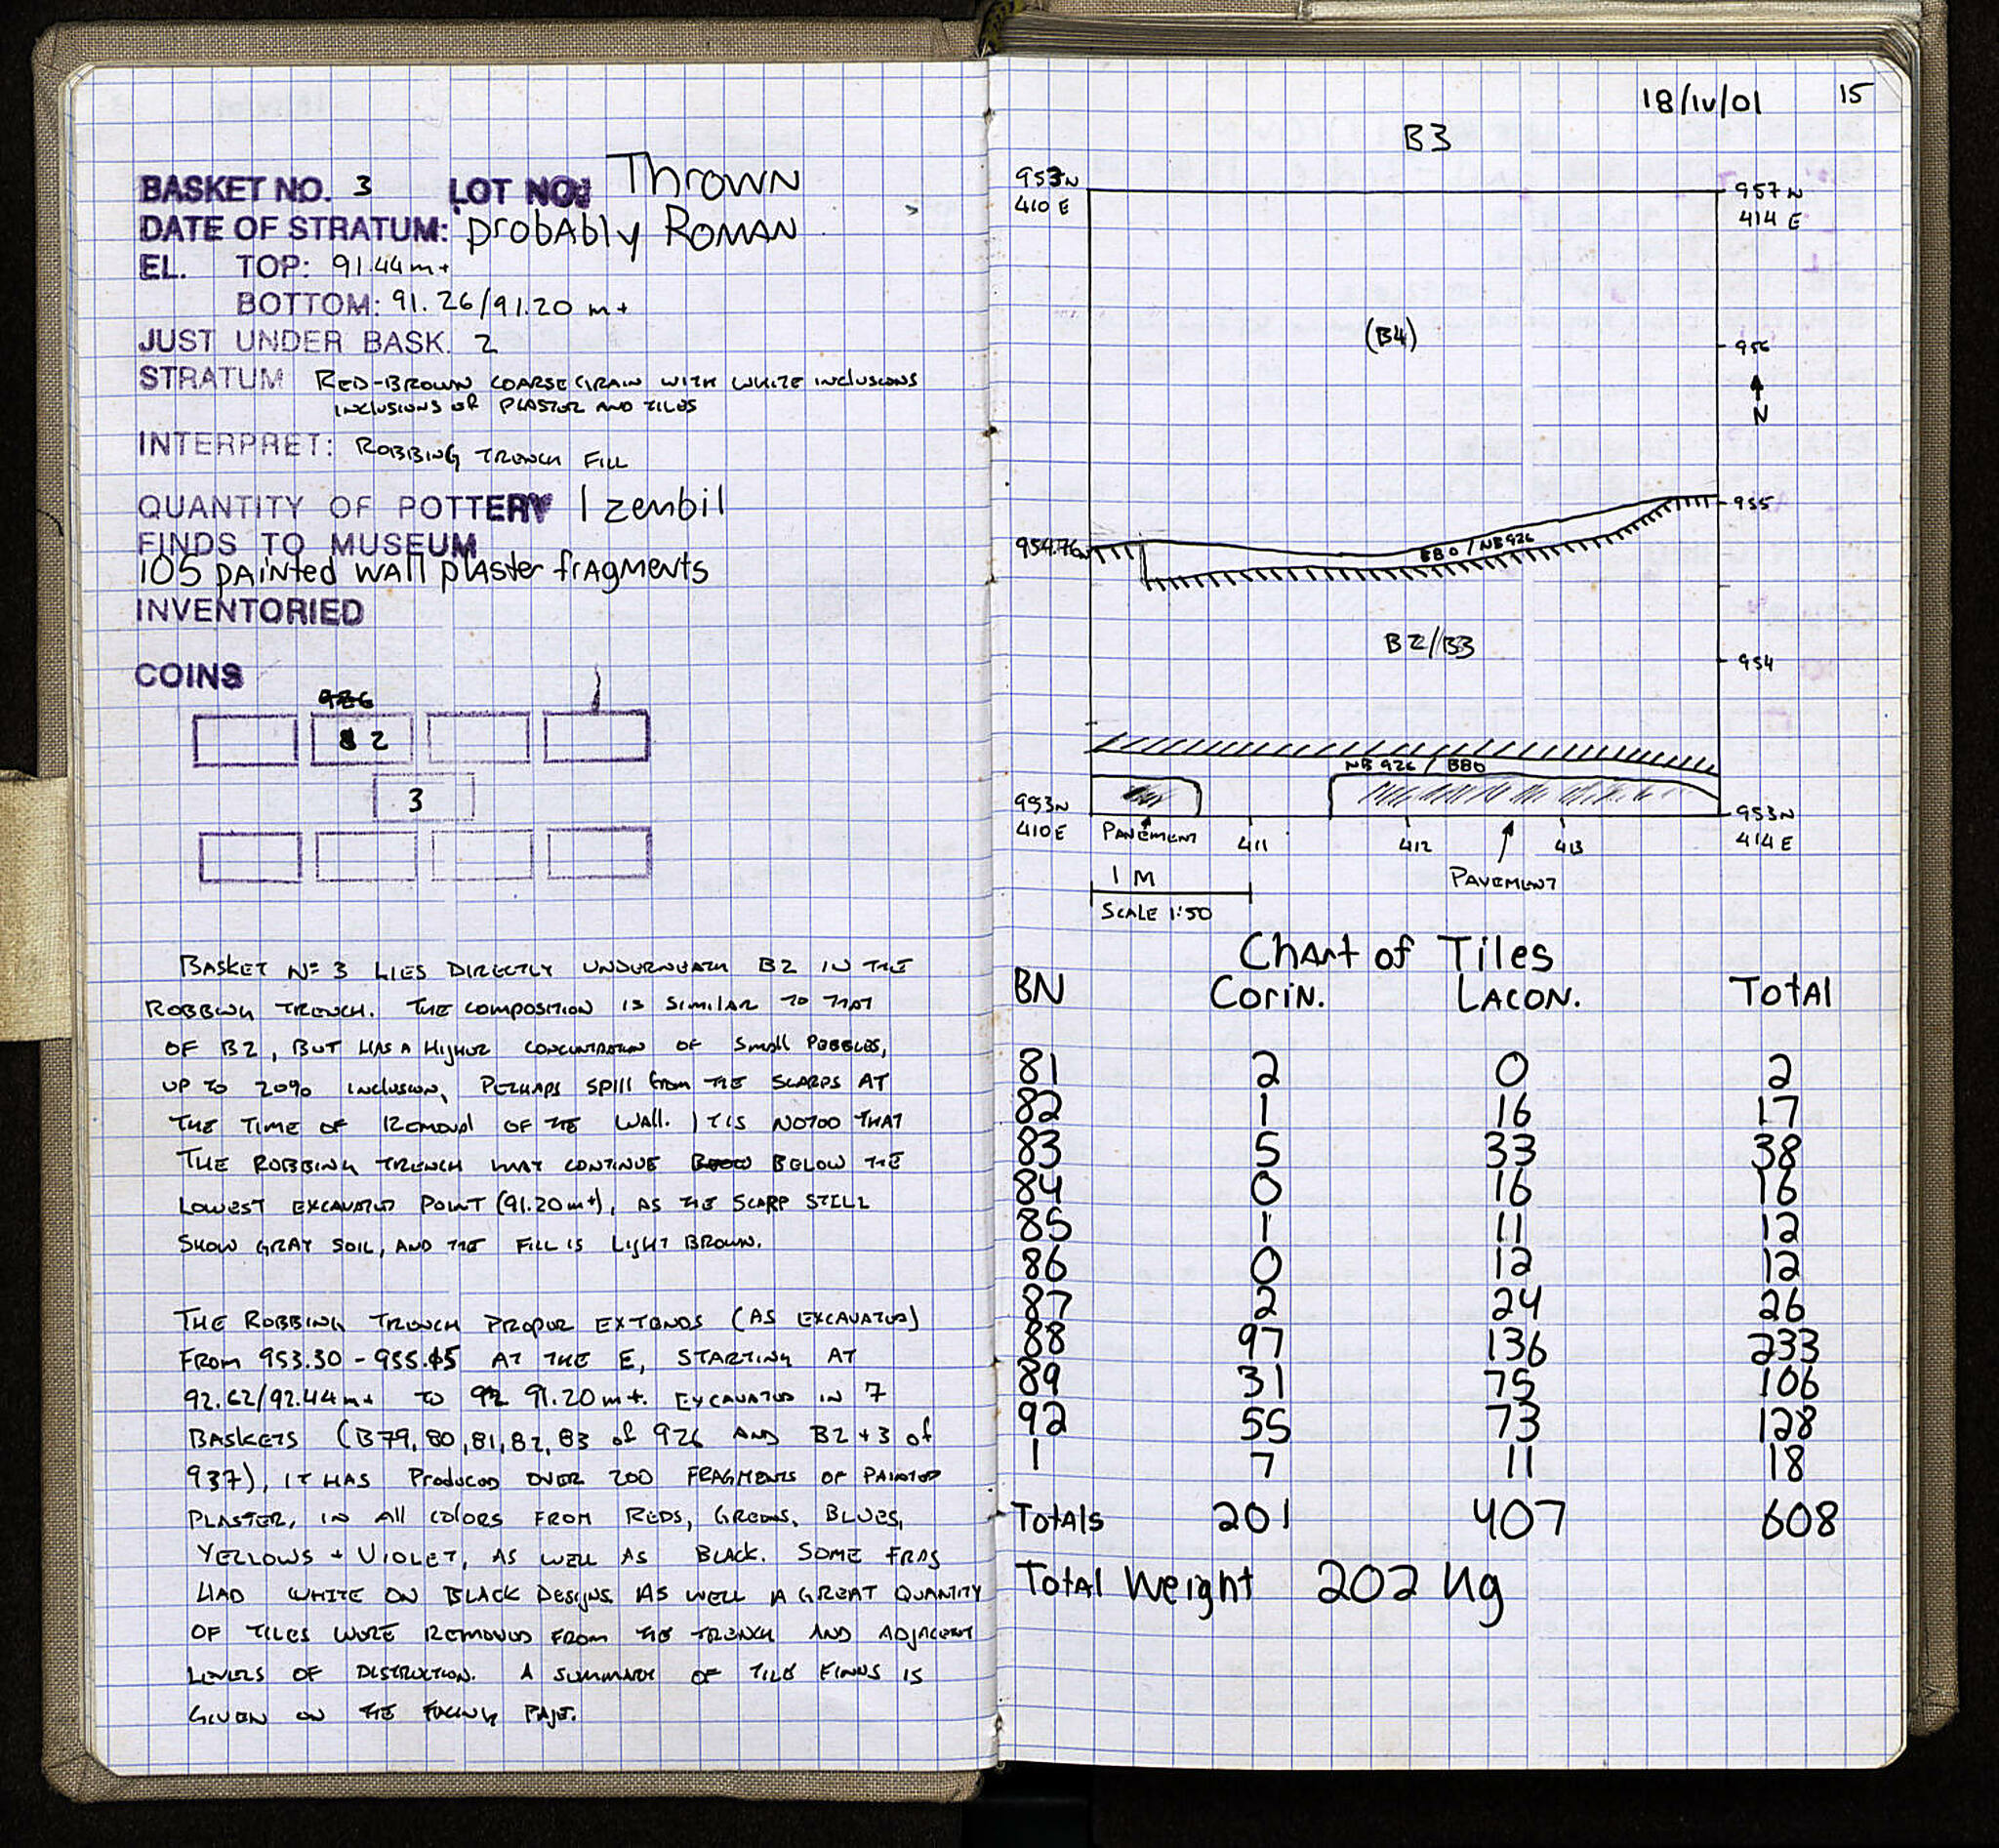 BASKET NO. 3 LOT NO: Thrown
DATE OF STRATUM: probably ROMAN
EL. TOP: 91.44m+
BOTTOM: 91.26/91.20 m+
JUST UNDER BASK. 2
STRATUM RED-BROWN COARSE GRAIN WITH WHITE INCLUSIONS
INCLUSIONS OF PLASTER AND TILES
INTERPRET: ROBBING TRENCH FILL
QUANTITY OF POTTERY 1 zembil
FINDS TO MUSEUM
105 painted wall plaster fragments
INVENTORIED
COINS
926
2
3
BASKET Nº 3 LIES DIRECTLY UNDERNEATH B2 IN THE
ROBBING TRENCH. THE COMPOSITION IS SIMILAR TO THAT
OF B2, BUT HAS A HIGHER CONCENTRATION OF SMALL PEBBLES,
UP TO 20% INCLUSION, PERHAPS SPILL FROM THE SCARPS AT
THE TIME OF REMOVAL OF THE WALL. IT IS NOTED THAT
THE ROBBING TRENCH MAY CONTINUE BELOW THE
LOWEST EXCAVATED POINT (91.20m+), AS THE SCARP STILL
SHOW GRAY SOIL, AND THE FILL IS LIGHT BROWN.
THE ROBBING TRENCH PROPER EXTENDS (AS EXCAVATED)
FROM 953.30 - 955.45 AT THE E, STARTING AT
92.62/92.44m+ TO 92 91.20m+. EXCAVATED IN 7
BASKETS (B79, 80, 81, 82, 83 of 926 AND B2 + 3 of
937), IT HAS PRODUCED OVER 200 FRAGMENTS OF PAINTED
PLASTER, IN ALL COLORS FROM REDS, GREENS, BLUES,
YELLOWS + VIOLET, AS WELL AS BLACK. SOME FRAGS
HAD WHITE ON BLACK DESIGNS. AS WELL A GREAT QUANTITY
OF TILES WERE REMOVED FROM THE TRENCH AND ADJACENT
LEVELS OF DESTRUCTION. A SUMMARY OF TILE FINDS IS
GIVEN ON THE FACING PAGE.
18/IV/01 15
B3
953N
410 E
957 N
414 E
(B4)
956
N
955
954.76N
B80 / NB926
B2/B3
954
NB 926 / B80
953N
410 E
PAVEMENT
411
412
413
953N
414 E
PAVEMENT
1 M
SCALE 1:50
Chart of Tiles
BN Corin. LACON. Total
81 2 0 2
82 1 16 17
83 5 33 38
84 0 16 16
85 1 11 12
86 0 12 12
87 2 24 26
88 97 136 233
89 31 75 106
92 55 73 128
1 7 11 18
Totals 201 407 608
Total Weight 202 Kg